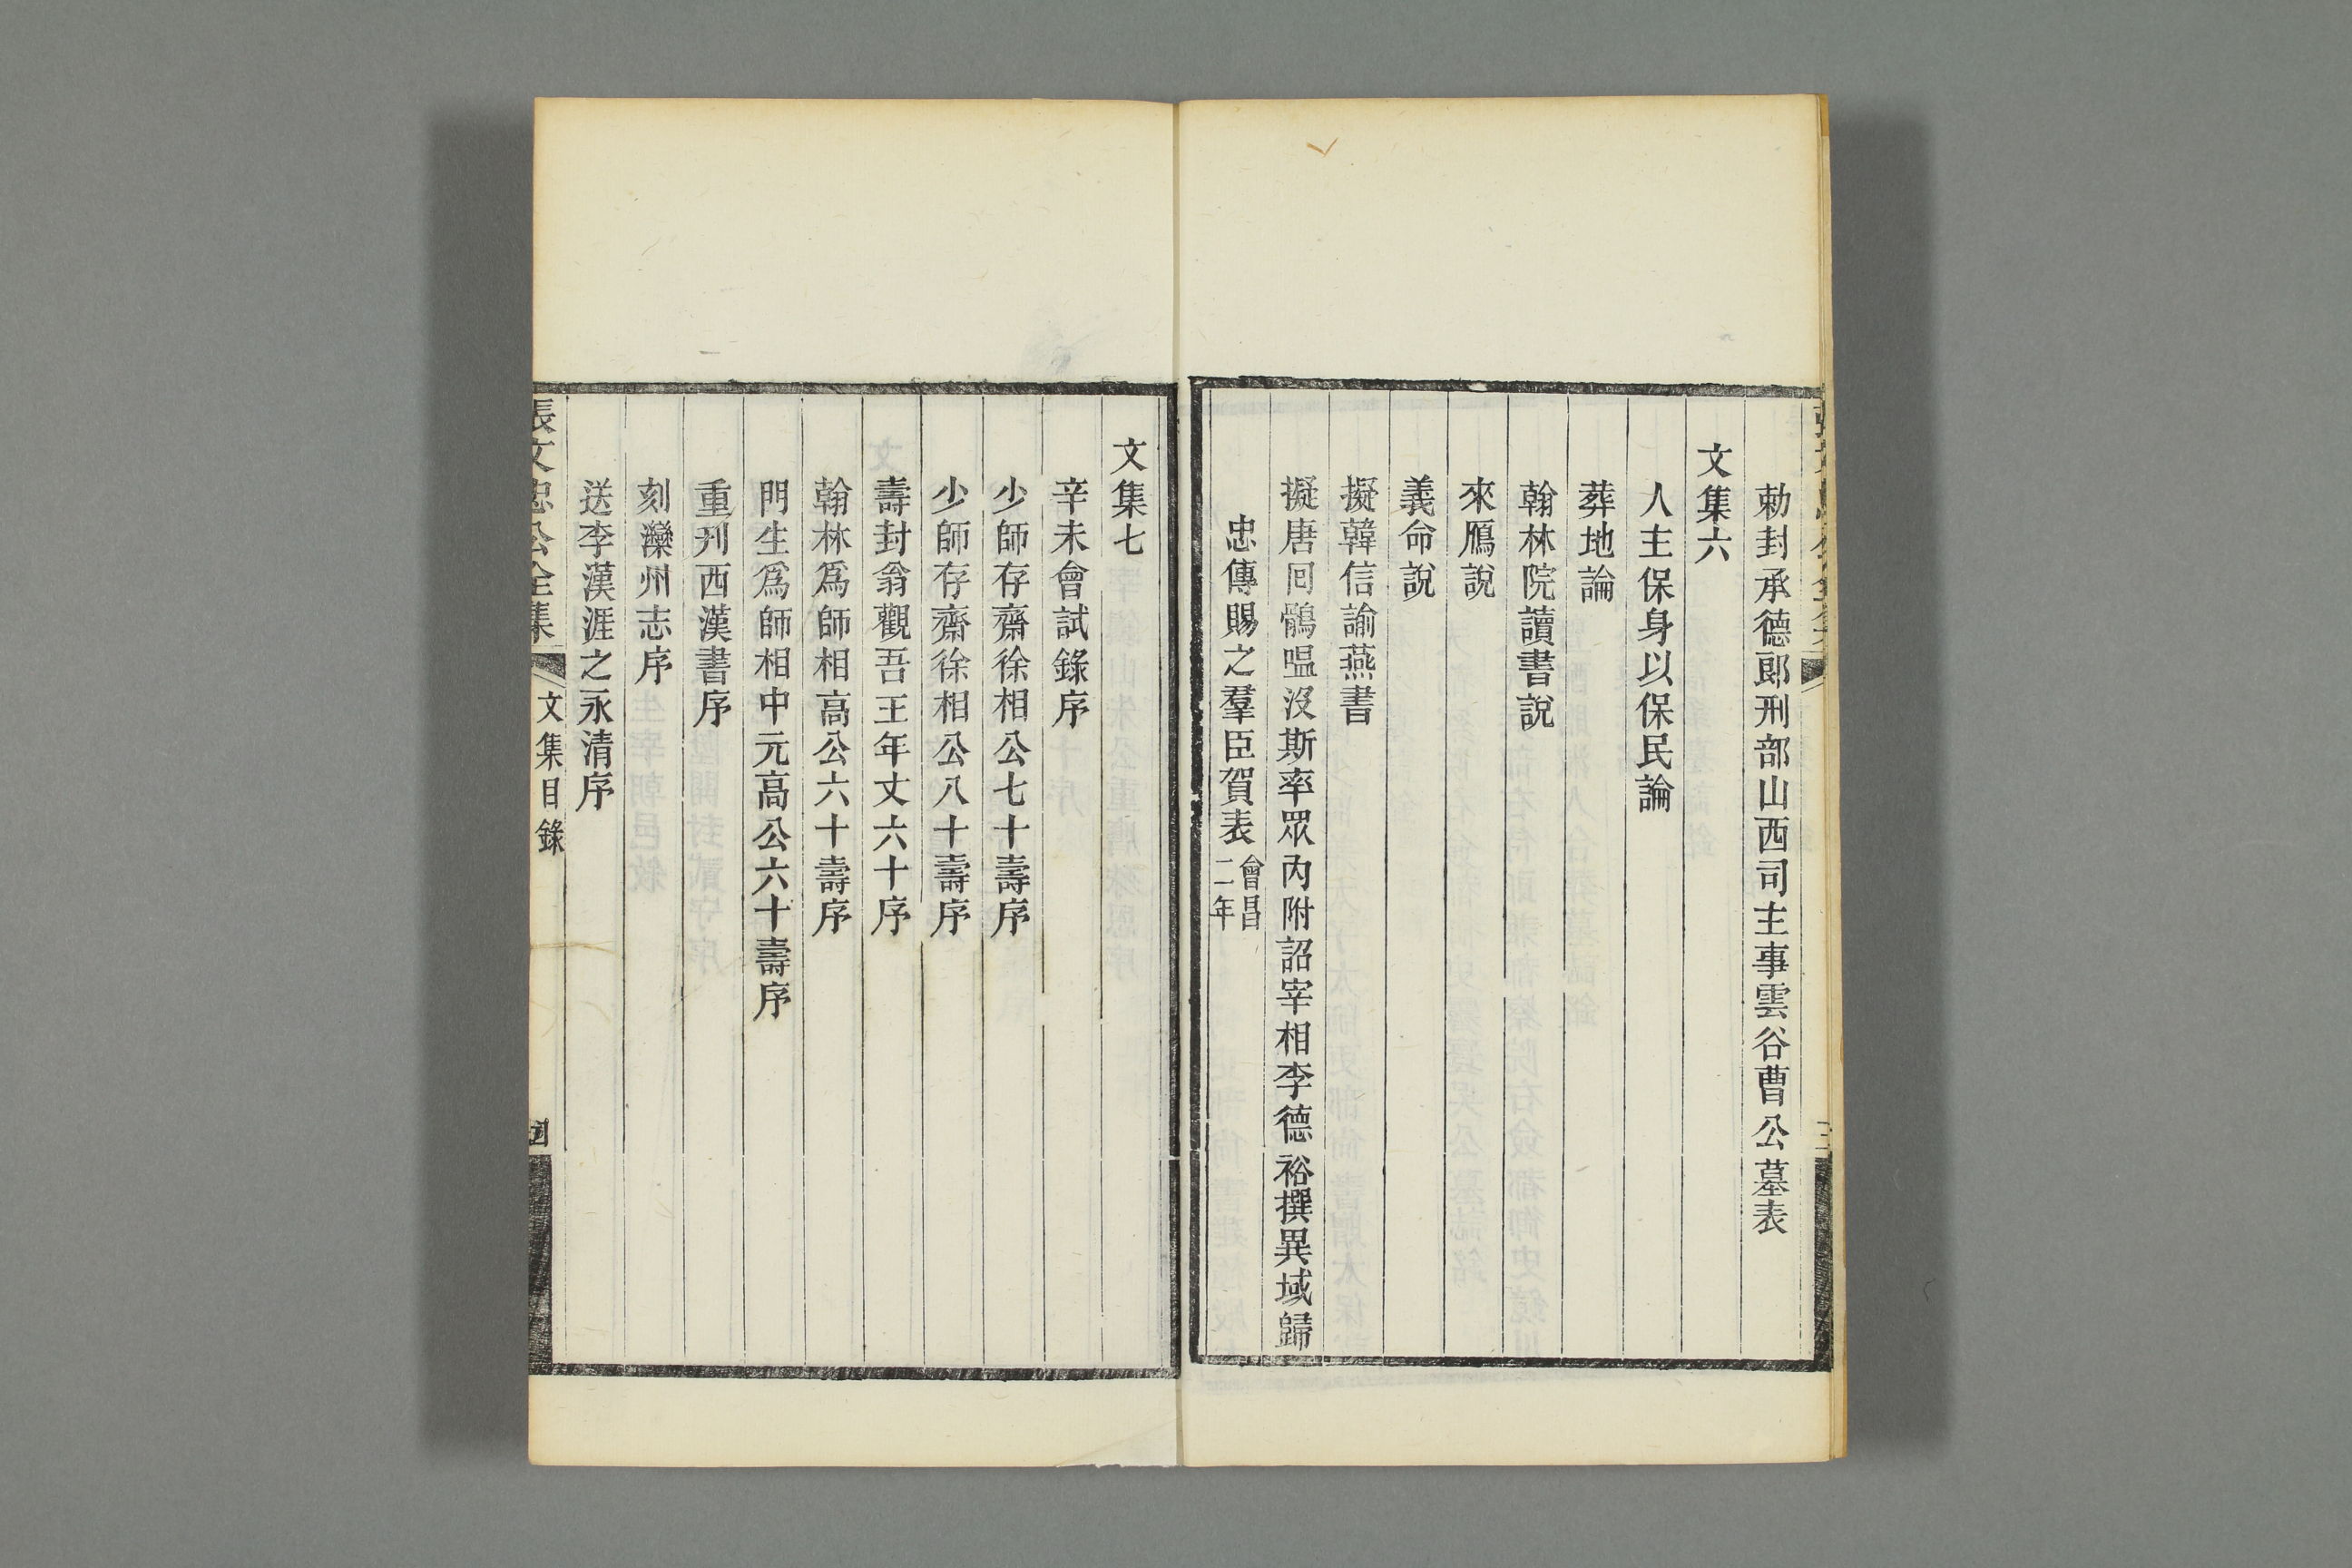 勅封承德郎刑部山西司主事雲谷曹公墓表
文集六
人主保身以保民論
葬地論
翰林院讀書說
來鴈說
義命說
擬韓信諭燕書
擬唐回鶻嗢沒斯率眾內附詔宰相李德裕撰異域歸
忠傳賜之羣臣賀表會昌二年
文集七
辛未會試錄序
少師存齋徐相公七十壽序
少師存齋徐相公八十壽序
壽封翁觀吾王年丈六十序
翰林爲師相高公六十壽序
門生爲師相中元高公六十壽序
重刋西漢書序
刻灤州志序
送李漢涯之永清序
張文忠公全集 文集目錄